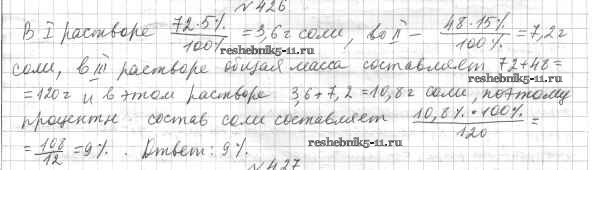 №426
В I растворе 72·5% / 100% = 3,6 г соли, во II – 48·15% / 100% = 7,2 г
reshebnik5-11.ru
соли, в III растворе общая масса составляет 72+48=
reshebnik5-11.ru
=120 г и в этом растворе 3,6+7,2=10,8 г соли, поэтому
процентн. состав соли составляет 10,8%·100% / 120 =
= 108/12 = 9%. Ответ: 9%.
reshebnik5-11.ru
№427